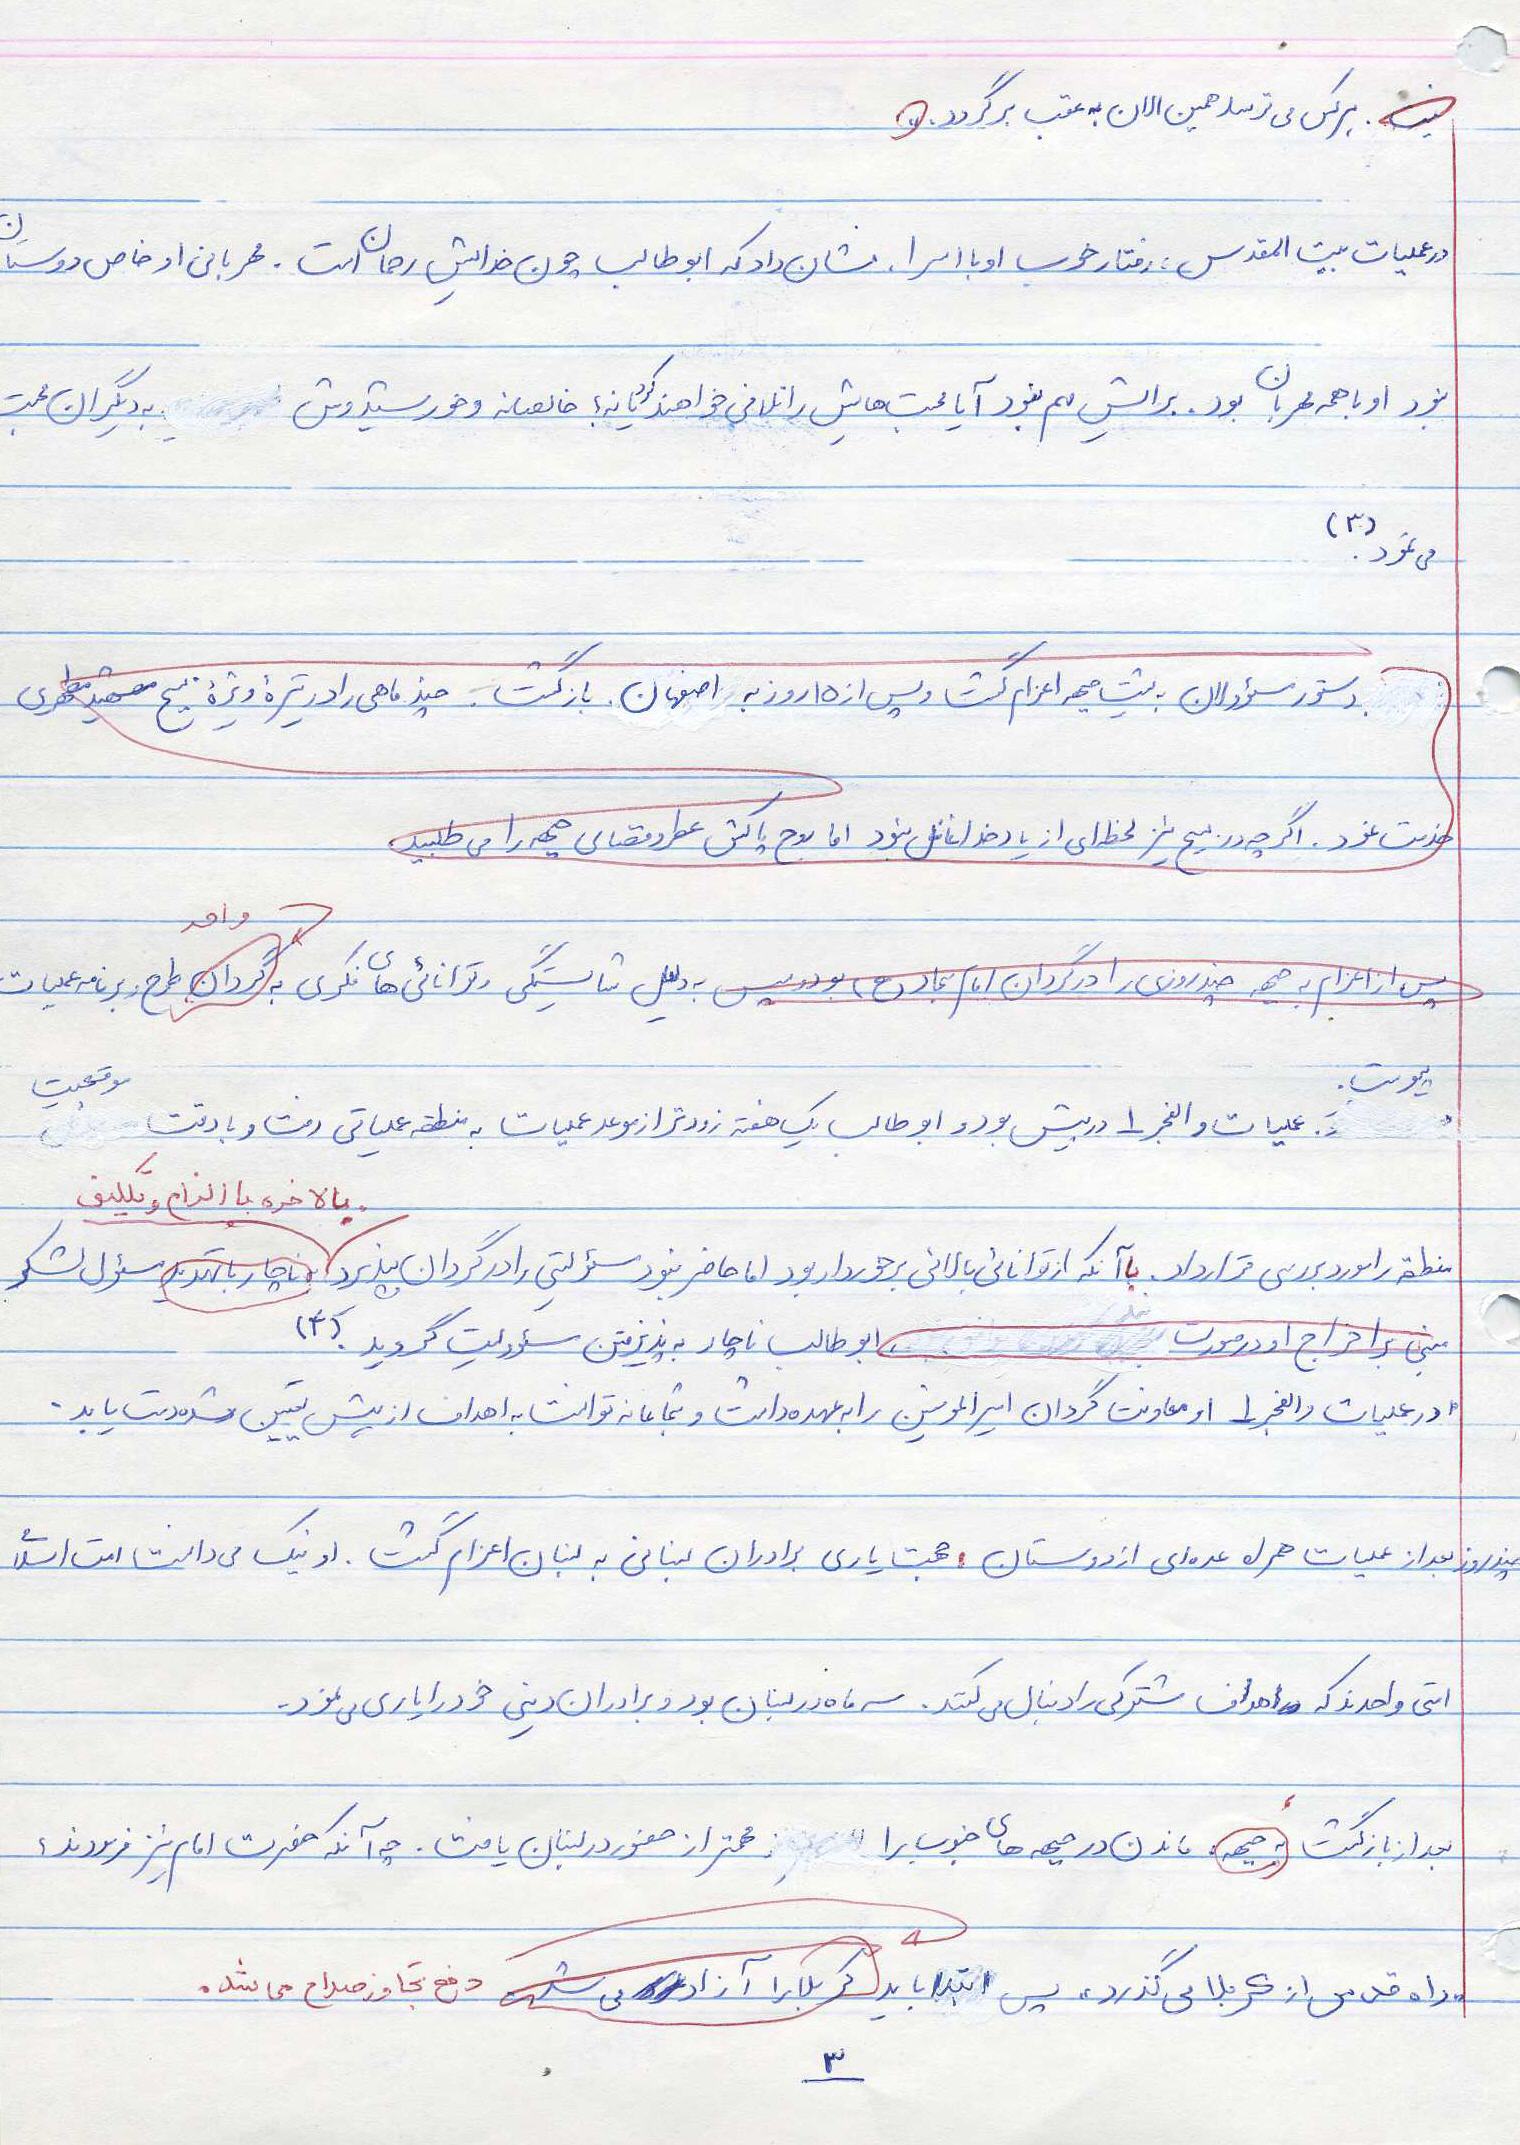 نیست. هرکس می‌ترسد همین الان به عقب برگردد.
در عملیات بیت المقدس؛ رفتار خوب او با اسرا، نشان داد که ابوطالب چون خدایش رحمان است. مهربانی او خاص دوستان
نبود او با همه مهربان بود. برایش مهم نبود آیا محبت‌هایش را تلافی خواهند کرد یا نه؛ خالصانه و خورشیدوش به دیگران محبت
می‌نمود. (۳)
دستور مسؤولان به پشت جبهه اعزام گشت و پس از ۱۵ روز به اصفهان. بازگشت. چند ماهی را در تیرهٔ ویژهٔ بسیج شهید مطهری
خدمت نمود. اگر چه در بسیج نیز لحظه‌ای از یاد خدا غافل نبود اما روح پاکش عطر و فضای جبهه را می‌طلبید
واحد
پس از اعزام به جبهه چند روزی را در گردان امام سجاد (ع) بود و سپس به دلیل شایستگی و توانائی‌های فکری به گردان طرح و برنامه عملیات
پیوست.
موقعیت
عملیات والفجر ۱ در پیش بود و ابوطالب یک هفته زودتر از موعد عملیات به منطقه عملیاتی رفت و با دقت
بالاخره با الزام و تکلیف
منطقه را مورد بررسی قرار داد. با آنکه از توانائی بالائی برخوردار بود اما حاضر نبود مسؤلیتی را در گردان بپذیرد ناچار با تهدید مسؤل لشکر
مبنی بر اخراج او در صورت ابوطالب ناچار به پذیرفتن مسؤولیت گردید. (۴)
در عملیات والفجر ۱ او معاونت گردان امیرالمومنین را به عهده داشت و شجاعانه توانست به اهداف از پیش تعیین شده دست یابد.
چند روز بعد از عملیات همراه عده‌ای از دوستان جهت یاری برادران لبنانی به لبنان اعزام گشت. او نیک می‌دانست امت اسلام
امتی واحدند که اهداف مشترکی را دنبال می‌کنند. سه ماه در لبنان بود و برادران دینی خود را یاری می‌نمود.
بعد از بازگشت به جبهه، ماندن در جبهه های جنوب را مهمتر از حضور در لبنان یافت. چه آنکه حضرت امام نیز فرمودند؛
«راه قدس از کربلا می‌گذرد» پس ابتدا باید کربلا را آزاد می‌شد دفع تجاوز صدام می‌شد.
۳